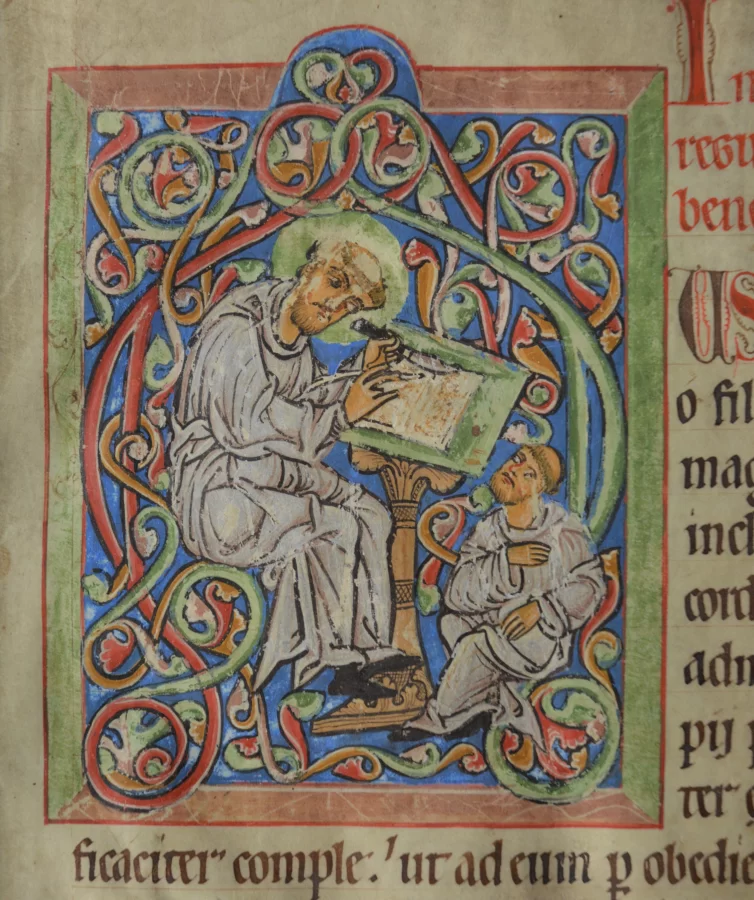 In
regu
bene
US
o fil
mag
incl
cord
adm
pij p
ter
ficaciter comple. ut ad eum p̱ obedie